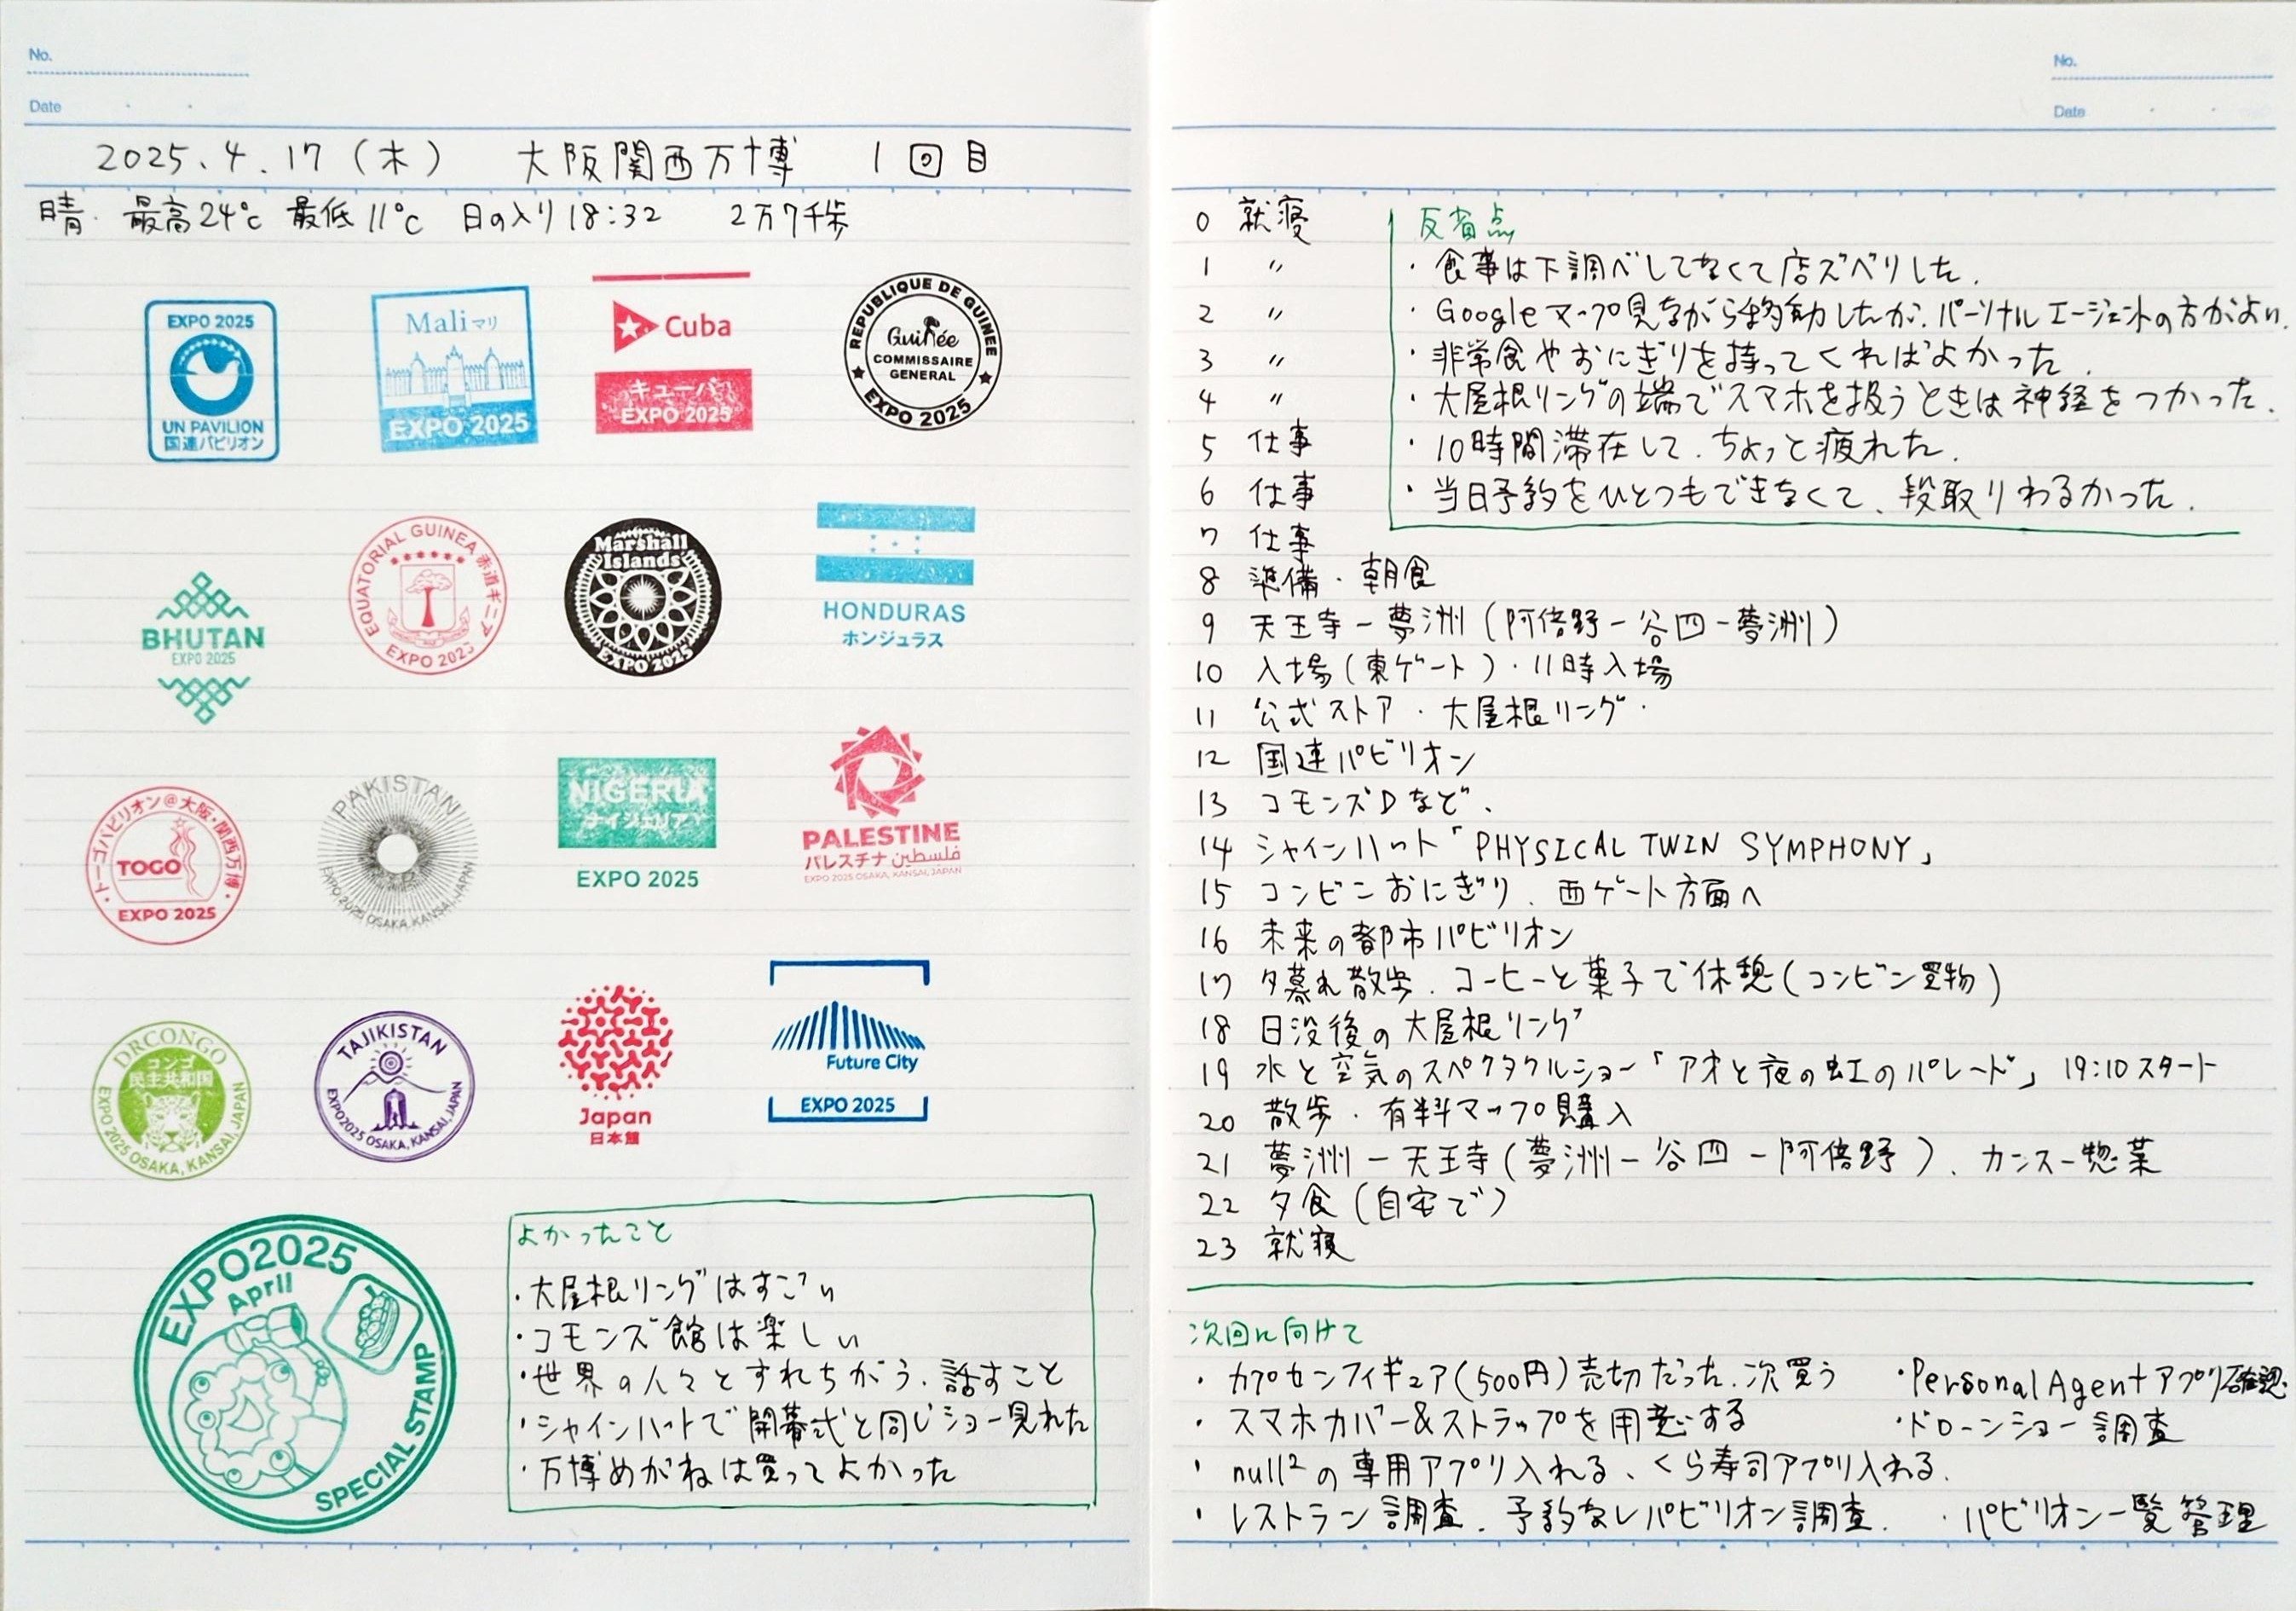 No.
Date
2025.4.17(木) 大阪関西万博 1回目
晴. 最高24℃ 最低11℃ 日の入り18:32 2万7千歩
EXPO 2025
UN PAVILION
国連パビリオン
Mali マリ
EXPO 2025
Cuba
キューバ
EXPO 2025
REPUBLIQUE DE GUINEE
Guinée
COMMISSAIRE
GENERAL
EXPO 2025
BHUTAN
EXPO 2025
EQUATORIAL GUINEA 赤道ギニア
EXPO 2025
Marshall
Islands
EXPO 2025
HONDURAS
ホンジュラス
トーゴパビリオン@大阪・関西万博
TOGO
EXPO 2025
PAKISTAN
EXPO 2025 OSAKA, KANSAI, JAPAN
NIGERIA
ナイジェリア
EXPO 2025
PALESTINE
パレスチナ فلسطين
EXPO 2025 OSAKA, KANSAI, JAPAN
DRCONGO
コンゴ
民主共和国
EXPO 2025 OSAKA, KANSAI, JAPAN
TAJIKISTAN
EXPO2025 OSAKA, KANSAI, JAPAN
Japan
日本館
Future City
EXPO 2025
EXPO2025
April
SPECIAL STAMP
よかったこと
・大屋根リングはすごい
・コモンズ館は楽しい
・世界の人々とすれちがう、話すこと
・シャインハットで開幕式と同じショー見れた
・万博めがねは買ってよかった
No.
Date
0 就寝
1 〃
2 〃
3 〃
4 〃
5 仕事
6 仕事
7 仕事
8 準備・朝食
9 天王寺ー夢洲(阿倍野ー谷四ー夢洲)
10 入場(東ゲート)・11時入場
11 公式ストア・大屋根リング・
12 国連パビリオン
13 コモンズDなど.
14 シャインハット「PHYSICAL TWIN SYMPHONY」
15 コンビニおにぎり、西ゲート方面へ
16 未来の都市パビリオン
17 夕暮れ散歩. コーヒーと菓子で休憩(コンビン買物)
18 日没後の大屋根リング
19 水と空気のスペクタクルショー「アオと夜の虹のパレード」 19:10スタート
20 散歩・有料マップ購入
21 夢洲ー天王寺(夢洲ー谷四ー阿倍野)、カンスー惣菜
22 夕食(自宅で)
23 就寝
反省点
・食事は下調べしてなくて店ズベリした.
・Googleマップ見ながら移動したが、パーソナルエージェントの方がよい.
・非常食やおにぎりを持ってくればよかった.
・大屋根リングの端でスマホを扱うときは神経をつかった.
・10時間滞在して、ちょっと疲れた.
・当日予約をひとつもできなくて、段取りわるかった.
次回に向けて
・カプセンフィギュア(500円)売切だった.次買う ・Personal Agentアプリ確認.
・スマホカバー&ストラップを用意する ・ドローンショー調査
・null²の専用アプリ入れる、くら寿司アプリ入れる.
・レストラン調査. 予約なしパビリオン調査. ・パビリオン一覧管理